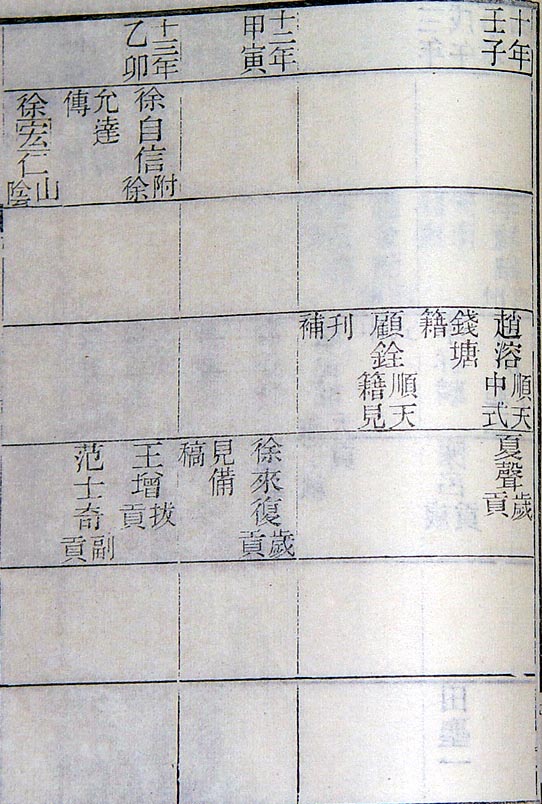 十年
壬子
趙溶順天中式
錢塘
籍
顧銓順天籍見
刊
補
夏聲歲貢
十二年
甲寅
徐來復歲貢
見備
稿
十三年
乙卯
徐自信附徐
允達
傳
徐宏仁山陰
王增拔貢
范士奇副貢